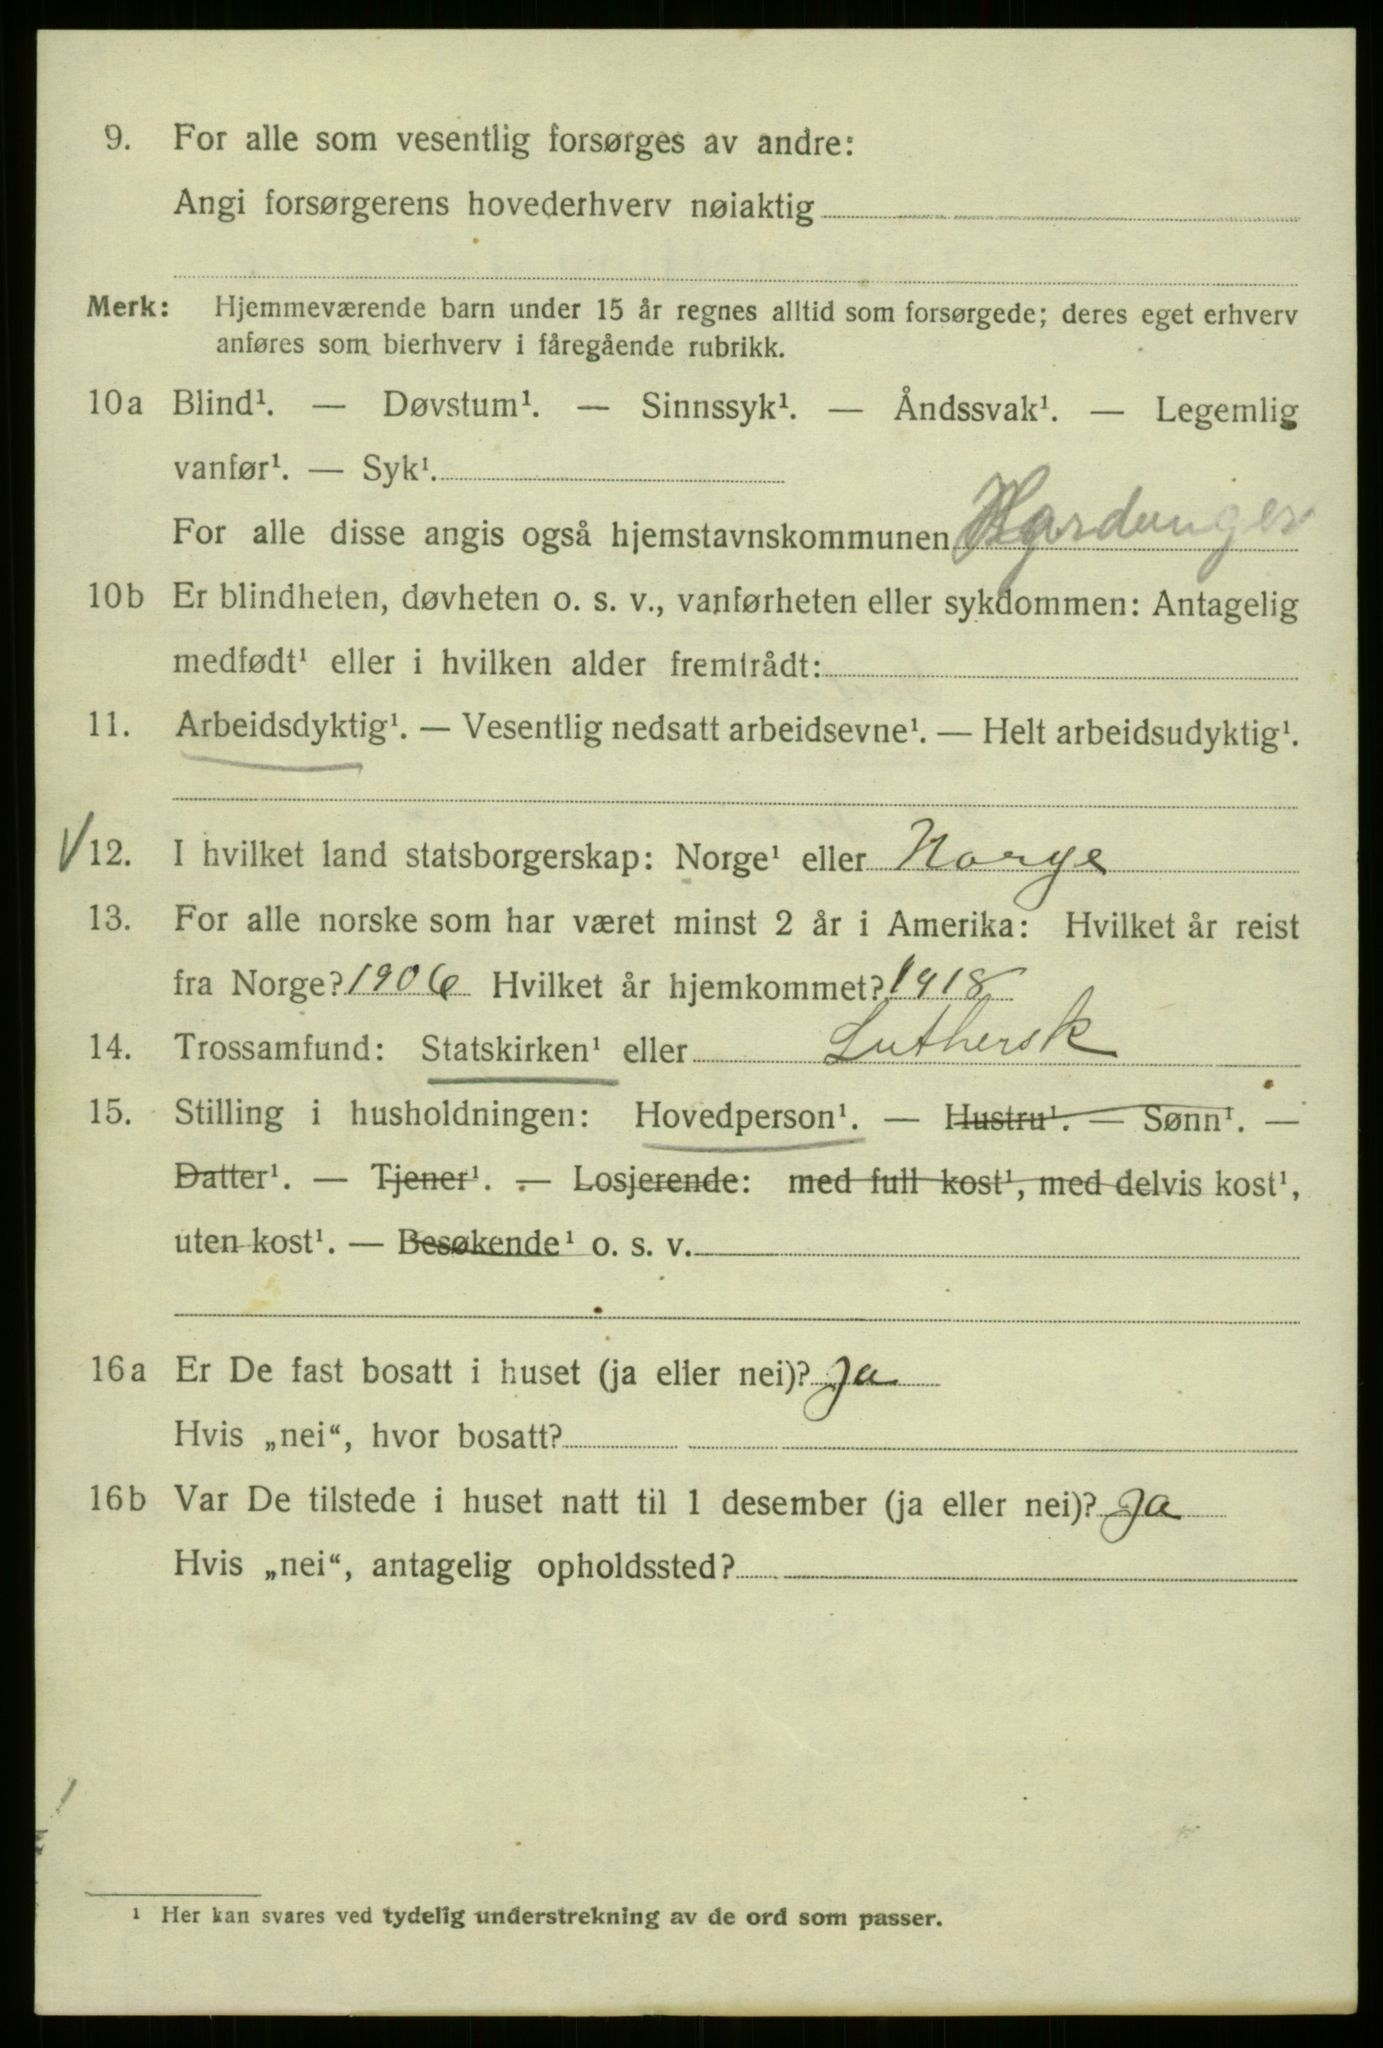 9. For alle som vesentlig forsørges av andre:
Angi forsørgerens hovederhverv nøiaktig
Merk: Hjemmeværende barn under 15 år regnes alltid som forsørgede; deres eget erhverv
anføres som bierhverv i fåregående rubrikk.
10a Blind¹. — Døvstum¹. — Sinnssyk¹. — Åndssvak¹. — Legemlig
vanfør¹. — Syk¹.
For alle disse angis også hjemstavnskommunen Hardanger
10b Er blindheten, døvheten o. s. v., vanførheten eller sykdommen: Antagelig
medfødt¹ eller i hvilken alder fremtrådt:
11. Arbeidsdyktig¹. — Vesentlig nedsatt arbeidsevne¹. — Helt arbeidsudyktig¹.
V 12. I hvilket land statsborgerskap: Norge¹ eller Norge
13. For alle norske som har været minst 2 år i Amerika: Hvilket år reist
fra Norge? 1906 Hvilket år hjemkommet? 1918
14. Trossamfund: Statskirken¹ eller Luthersk
15. Stilling i husholdningen: Hovedperson¹. — Hustru¹. — Sønn¹. —
Datter¹. — Tjener¹. — Losjerende: med full kost¹, med delvis kost¹,
uten kost¹. — Besøkende¹ o. s. v.
16a Er De fast bosatt i huset (ja eller nei)? Ja
Hvis „nei“, hvor bosatt?
16b Var De tilstede i huset natt til 1 desember (ja eller nei)? Ja
Hvis „nei“, antagelig opholdssted?
¹ Her kan svares ved tydelig understrekning av de ord som passer.